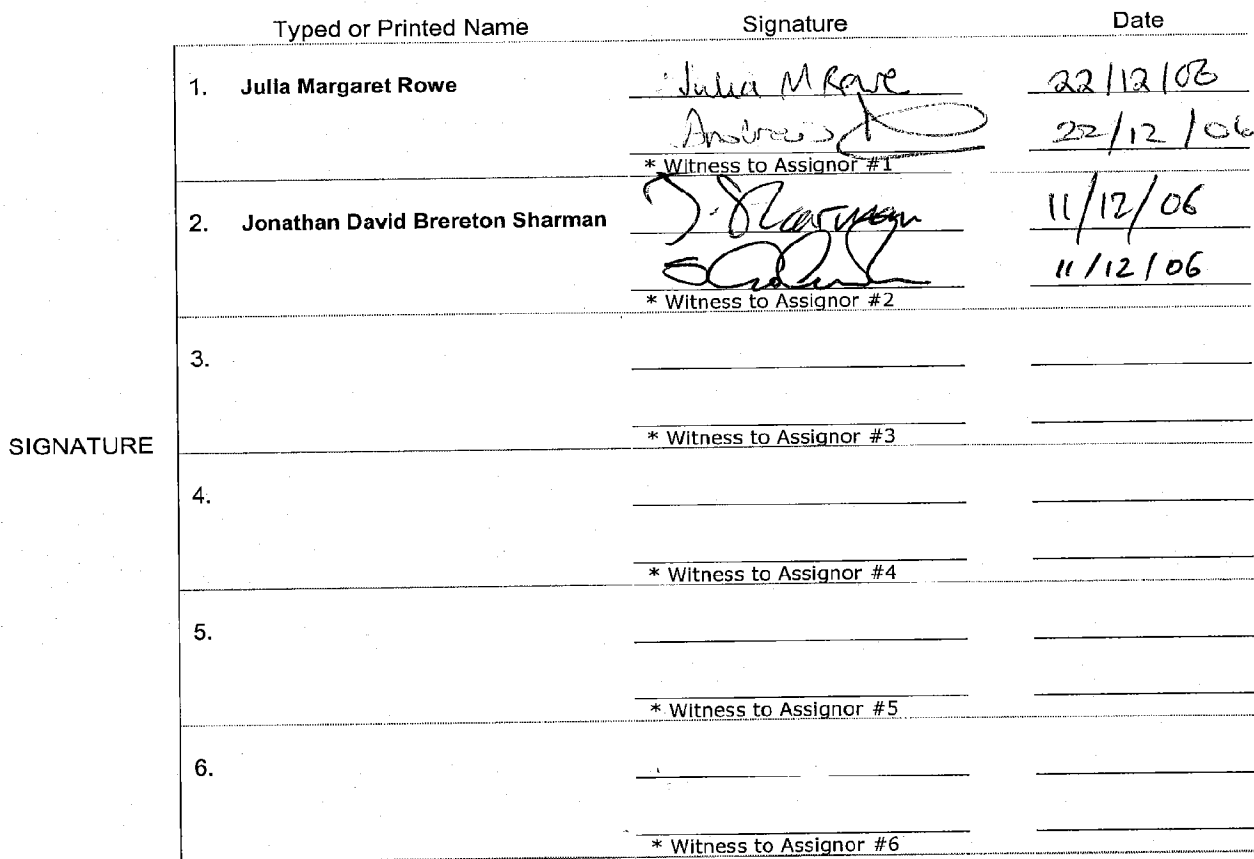 Typed or Printed Name Signature Date
1. Julia Margaret Rowe Julia M Rowe 22/12/06
22/12/06
* Witness to Assignor #1
2. Jonathan David Brereton Sharman J. Sharman 11/12/06
11/12/06
* Witness to Assignor #2
3.
* Witness to Assignor #3
SIGNATURE
4.
* Witness to Assignor #4
5.
* Witness to Assignor #5
6.
* Witness to Assignor #6